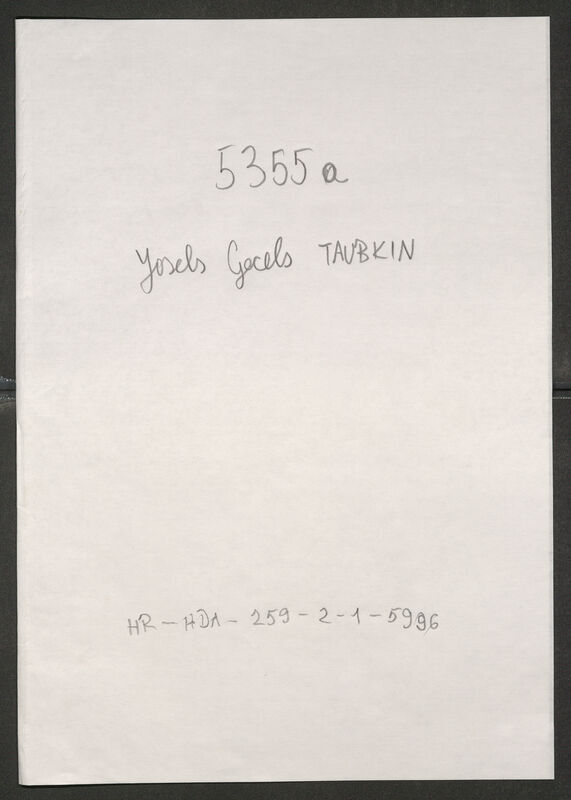 5355a
Yosels Gecels TAUBKIN
HR-HDA-259-2-1-5996